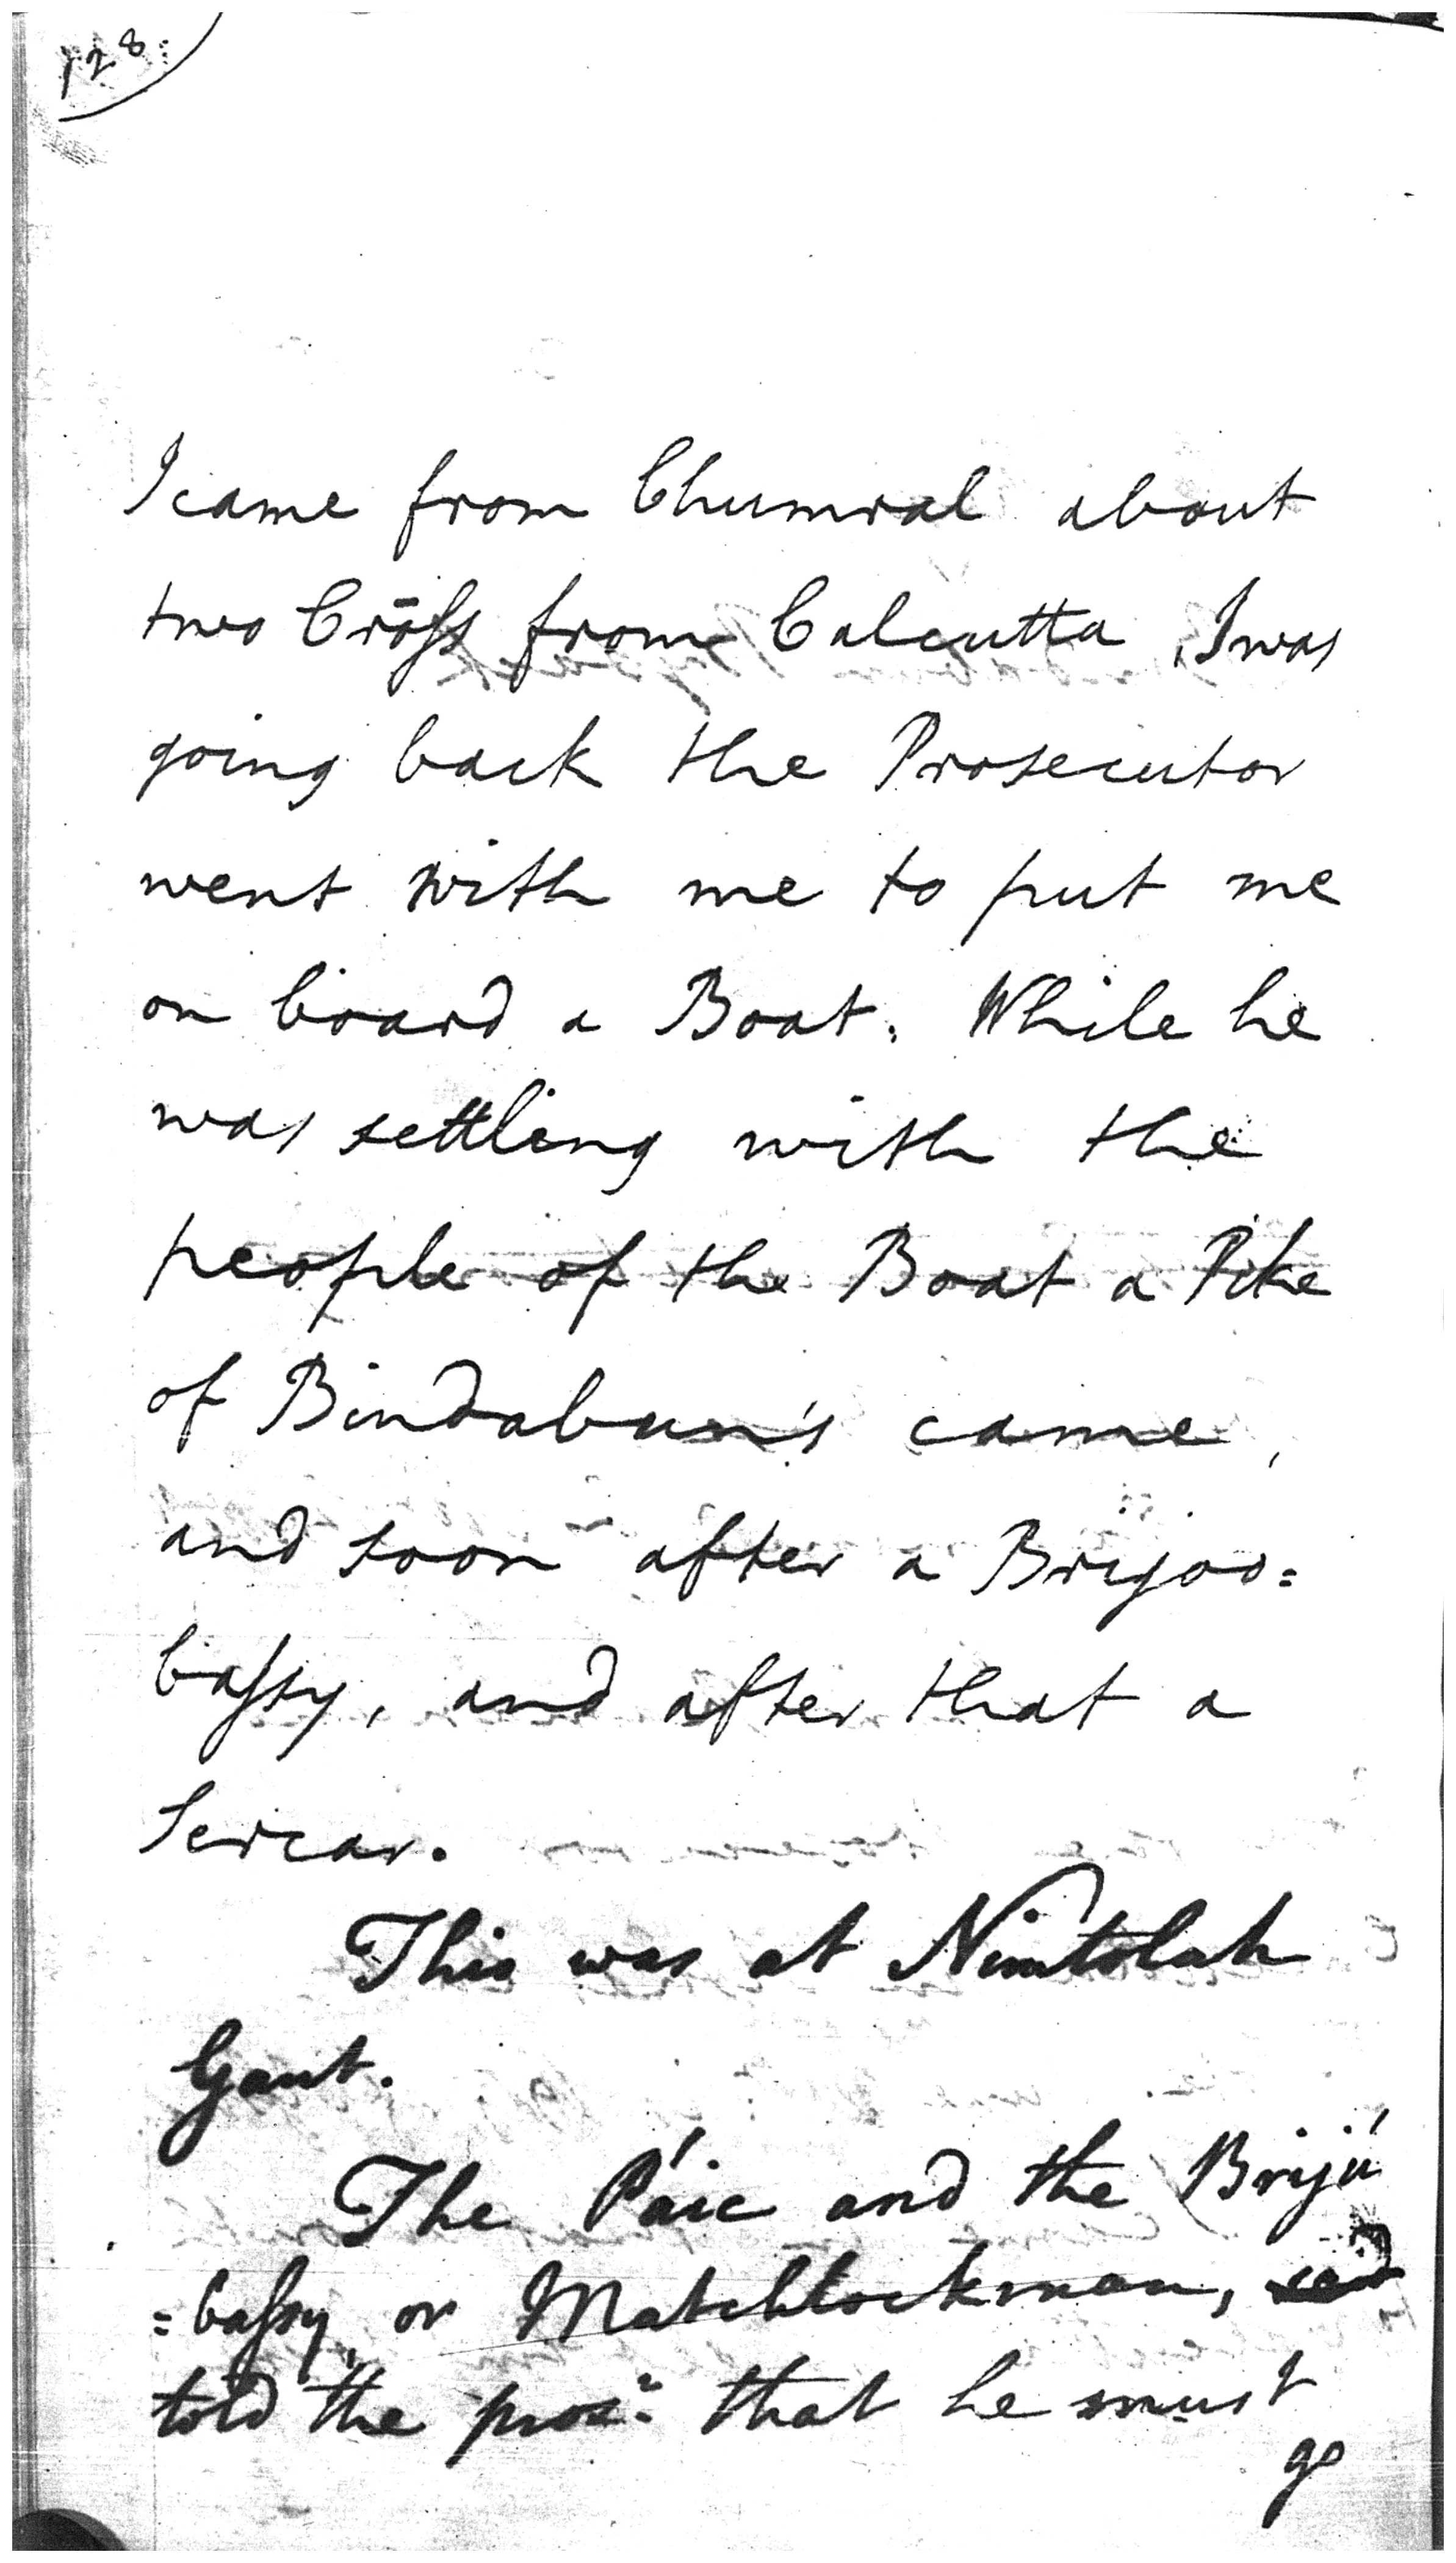 128
I came from Chumral about
two Crōſs from Calcutta, I was
going back the Prosecutor
went with me to put me
on board a Boat. While he
was settling with the
people of the Boat a Pike
of Bindabun's came,
and soon after a Brijoo=
baſsy, and after that a
Sercar.
This was at Nimtolah
Gaut.
The Páic and the Brijú
=baſsy, or Matchlockman,
told the prosr. that he must
go